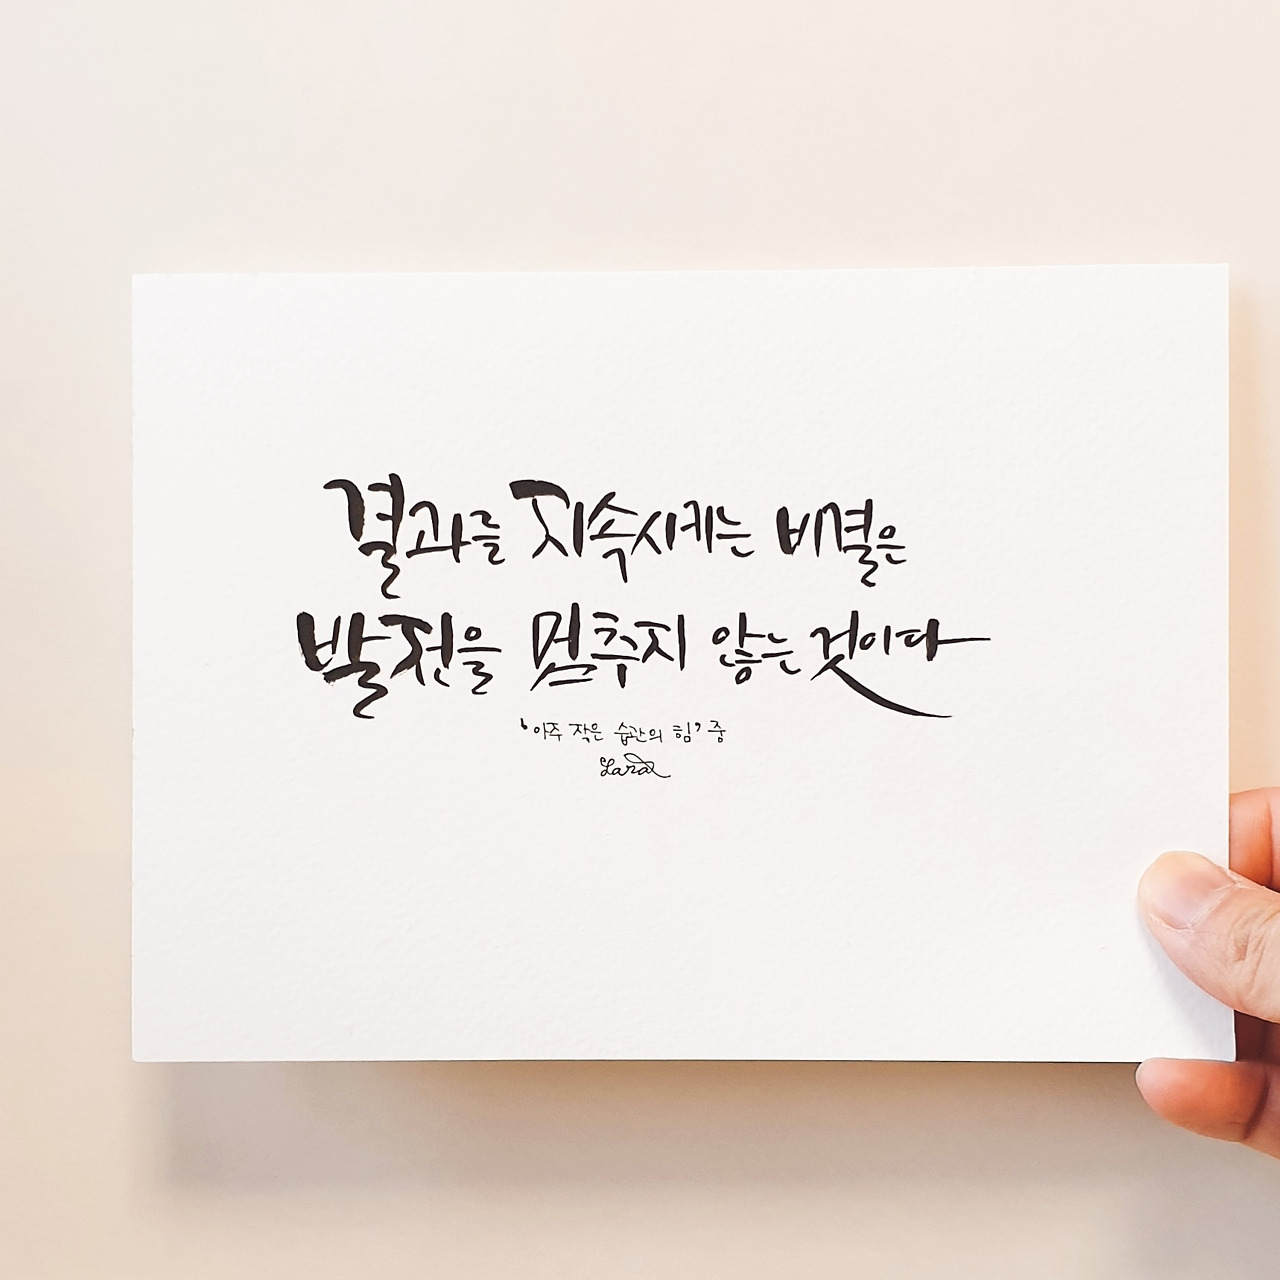 결과를 지속시키는 비결은
발전을 멈추지 않는 것이다
'아주 작은 습관의 힘' 중
Lara